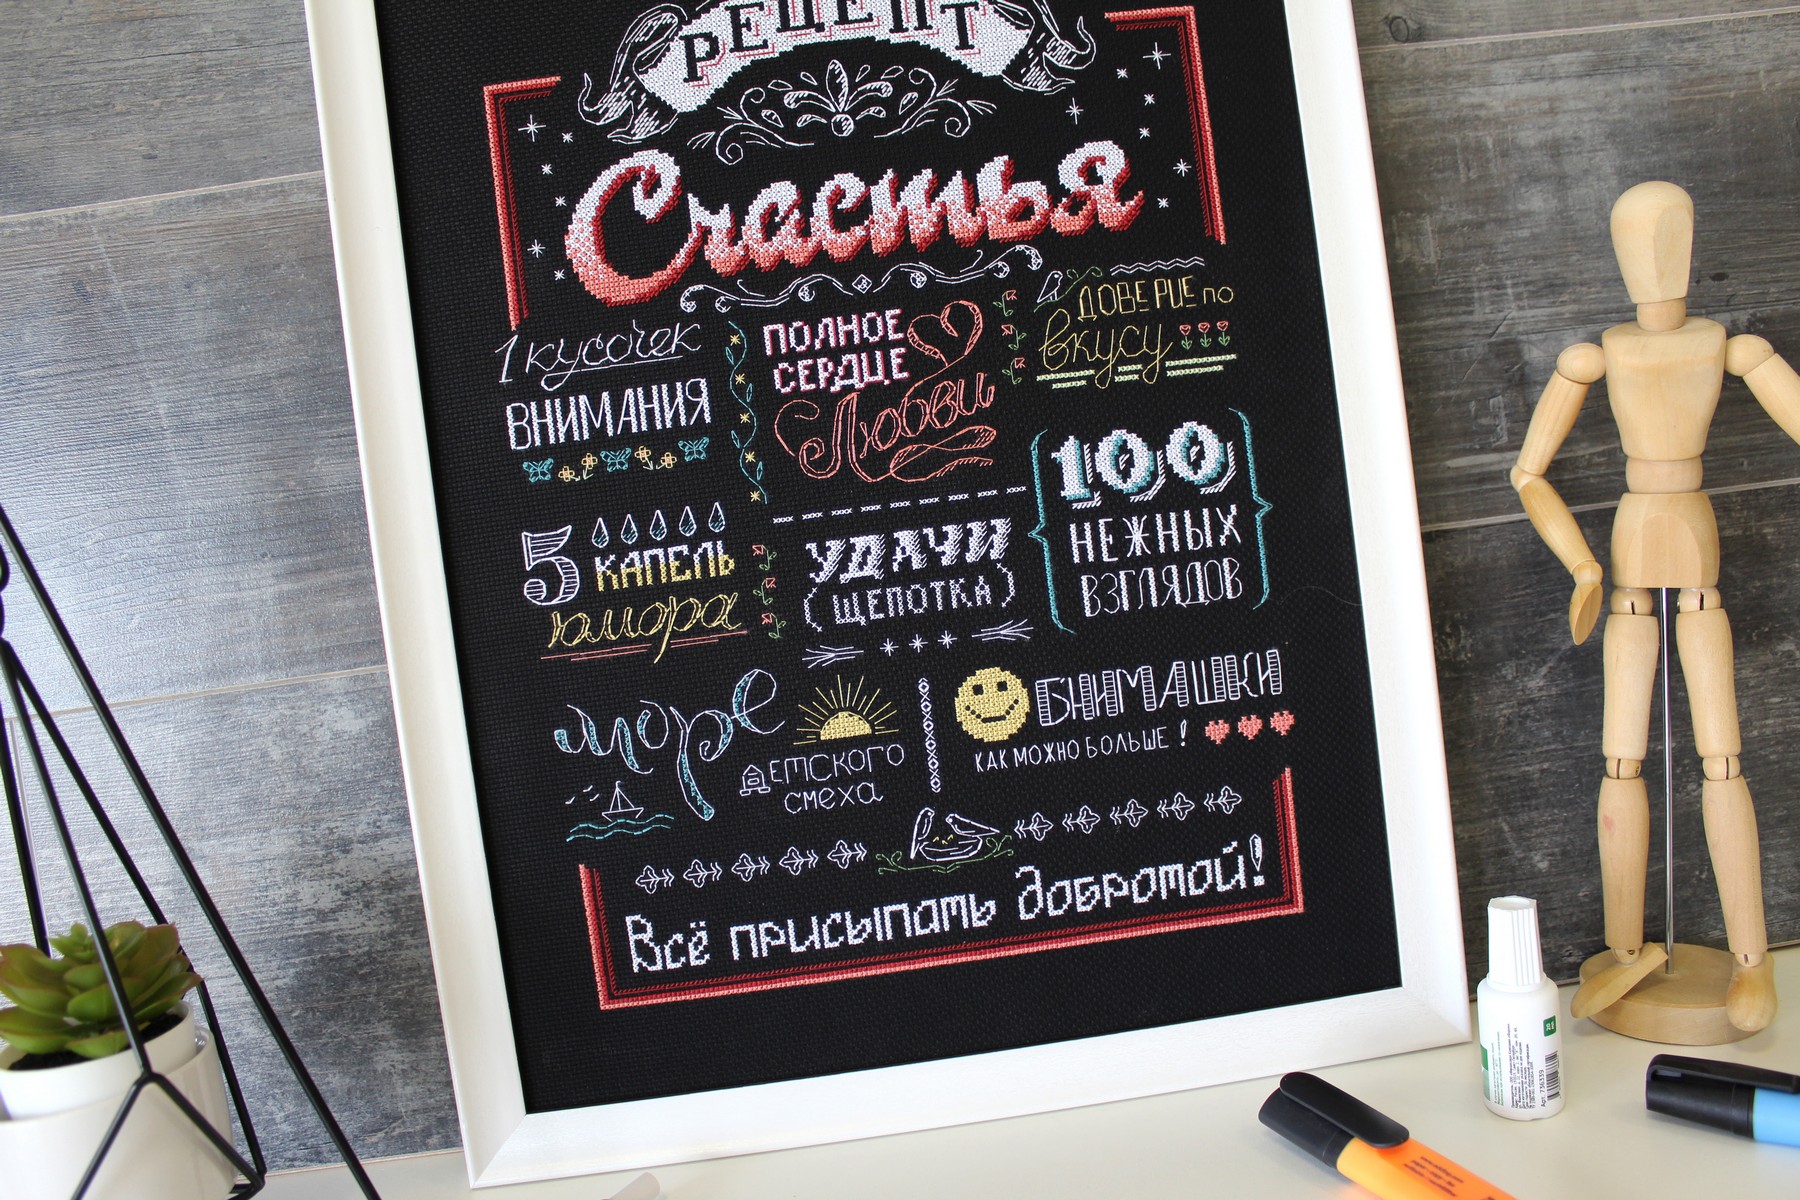 РЕЦЕПТ
Счастья
1 кусочек
ВНИМАНИЯ
ПОЛНОЕ
СЕРДЦЕ
Любви
ДОВЕРИЕ ПО
вкусу
5 КАПЕЛЬ
юмора
УДАЧИ
(ЩЕПОТКА)
100
НЕЖНЫХ
ВЗГЛЯДОВ
море
ДЕТСКОГО
смеха
БНИМАШКИ
КАК МОЖНО БОЛЬШЕ!
Всё присыпать добротой!
Арт. 736539